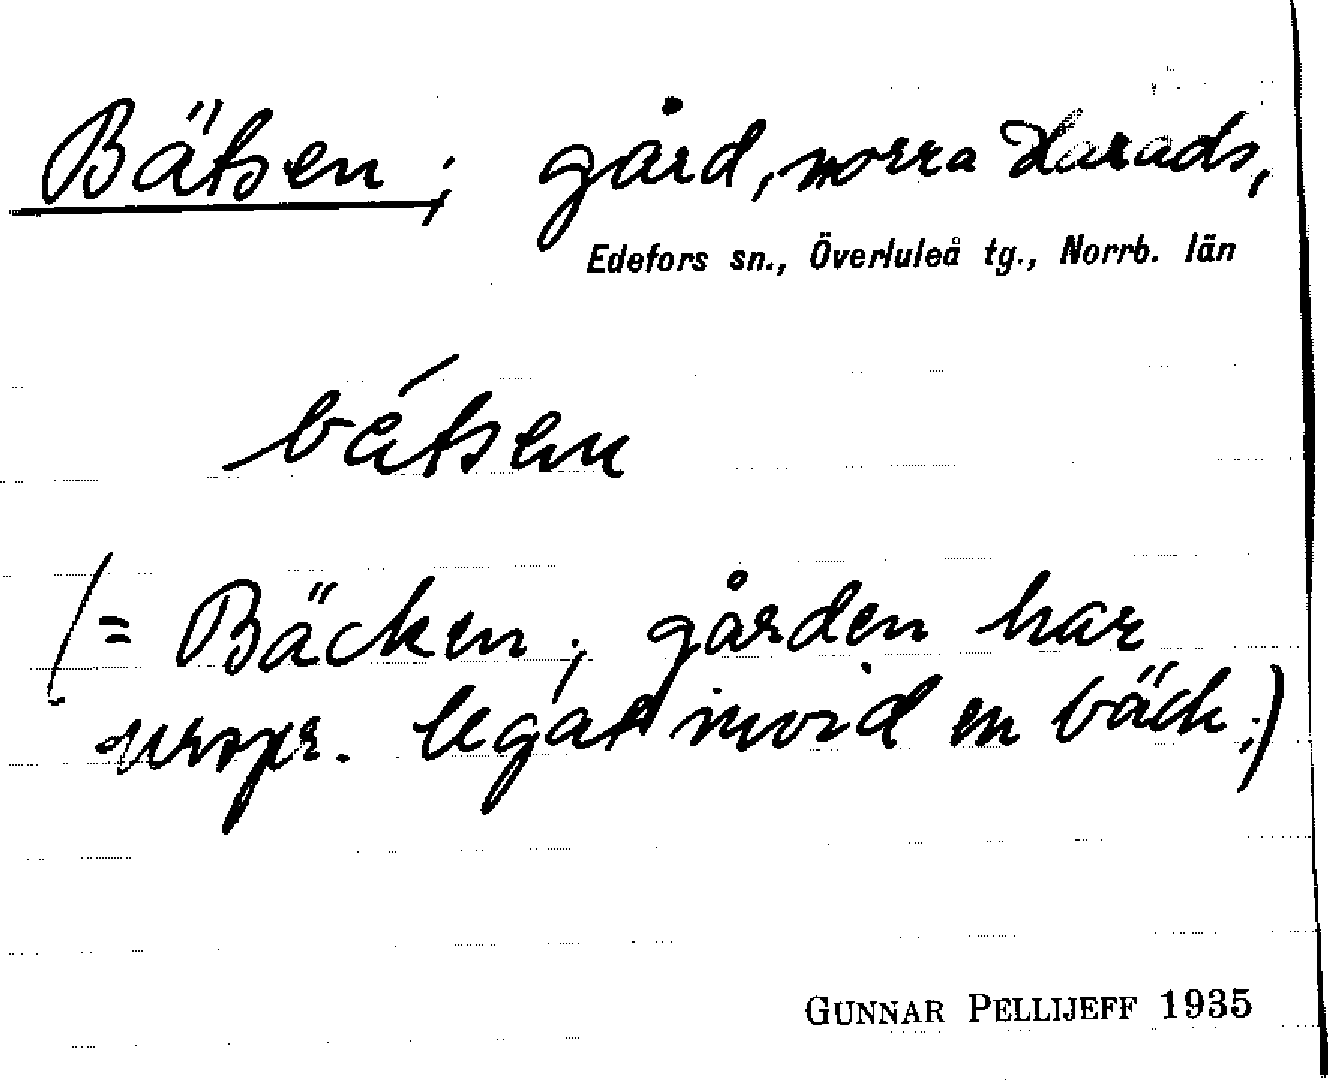 Bätsen; gård, norra Harads,
Edefors sn., Överluleå tg., Norrb. län
bátsen
(= Bäcken; gården har
urspr. legat invid en bäck;)
GUNNAR PELLIJEFF 1935